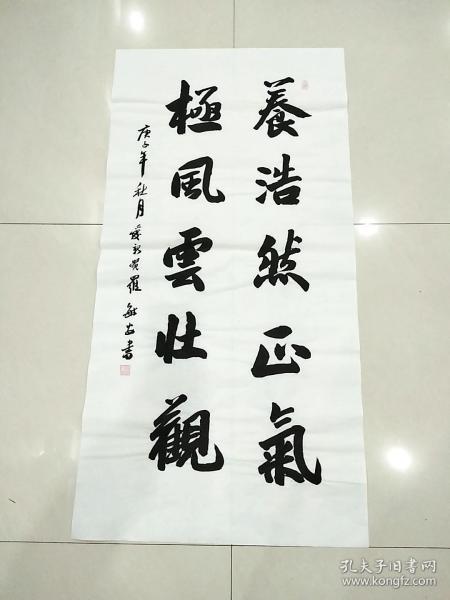 養浩然正氣
極風雲壯觀
庚子年秋月愛新覺羅
書
孔夫子旧书网
www.kongfz.com